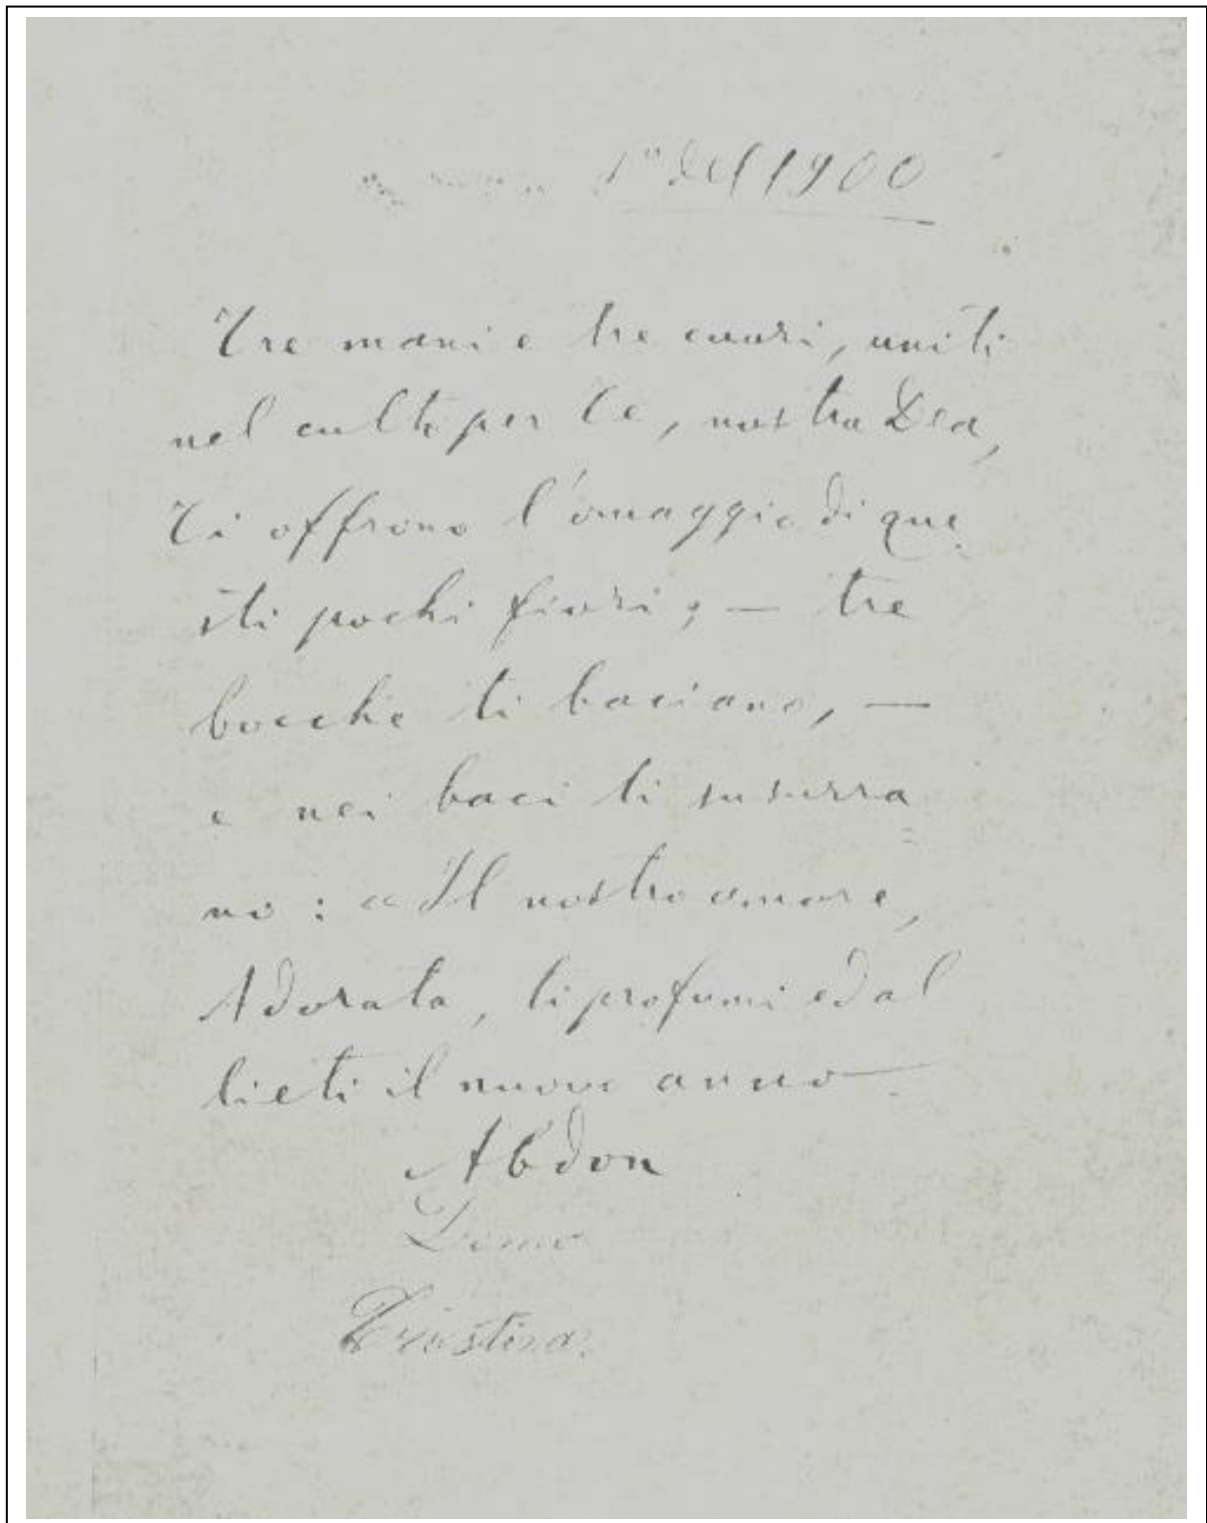 1º del 1900
Tre mani e tre cuori, uniti
nel culto per Te, nostra Dea,
Ti offrono l'omaggio di que
sti pochi fiori; — tre
bocche ti baciano, —
e nei baci ti susurra
no: « Il nostro amore,
Adorata, ti profumi ed al
lieti il nuovo anno
Abdon